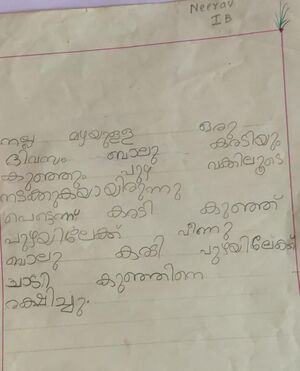 Neerav
I B
നല്ല മഴയുള്ള ഒരു
ദിവസം ബാലു കരടിയും
കുഞ്ഞും പുഴ വക്കിലൂടെ
നടക്കുകയായിരുന്നു
പെട്ടെന്ന് കരടി കുഞ്ഞ്
പുഴയിലേക്ക് വീണു
ബാലു കരടി പുഴയിലേക്ക്
ചാടി കുഞ്ഞിനെ
രക്ഷിച്ചു.